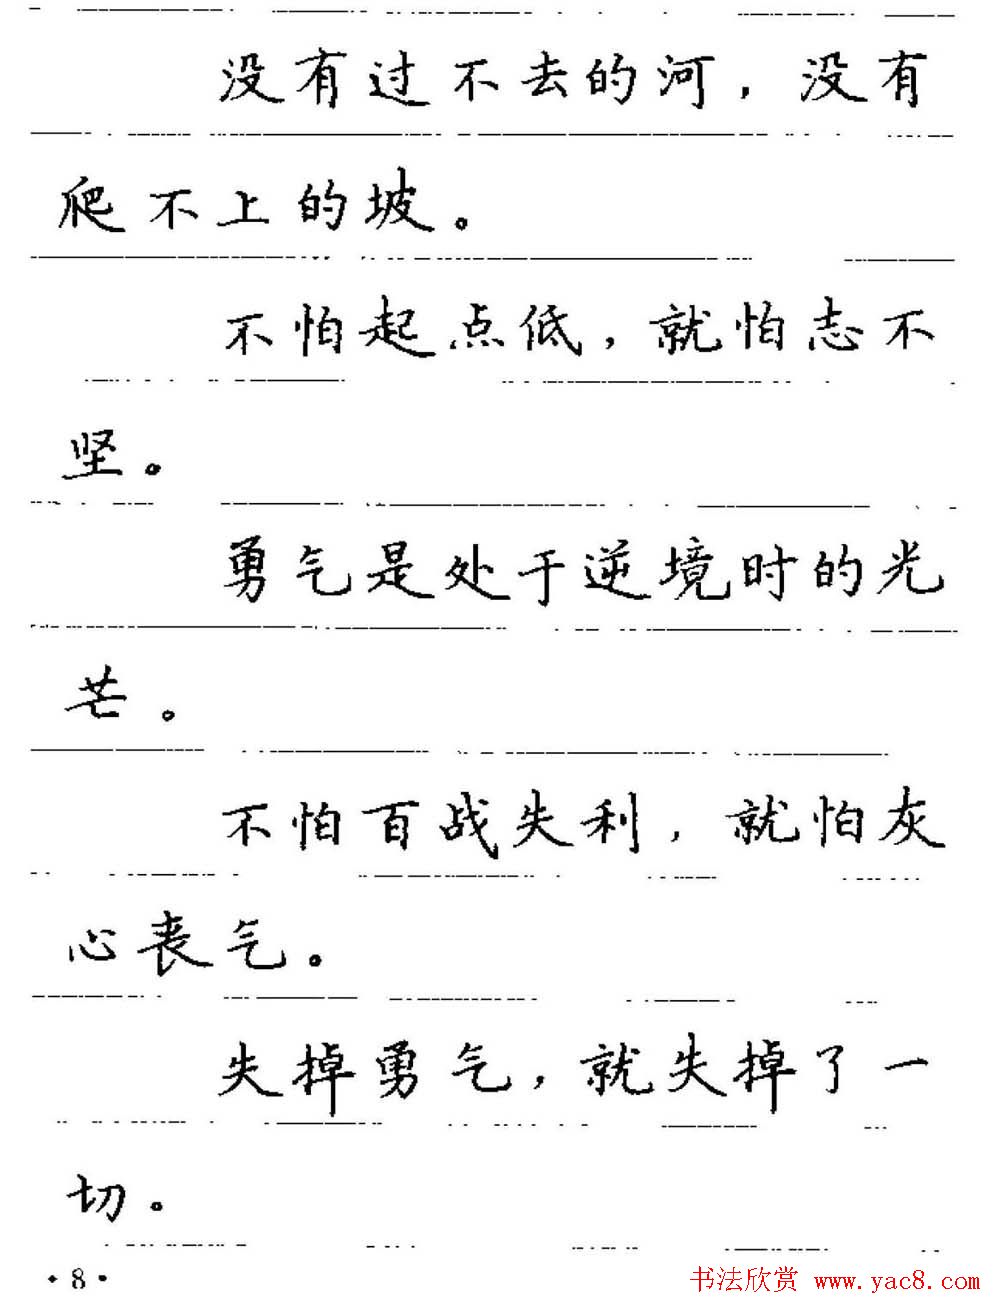 没有过不去的河，没有
爬不上的坡。
不怕起点低，就怕志不
坚。
勇气是处于逆境时的光
芒。
不怕百战失利，就怕灰
心丧气。
失掉勇气，就失掉了一
切。
·8·
书法欣赏 www.yac8.com